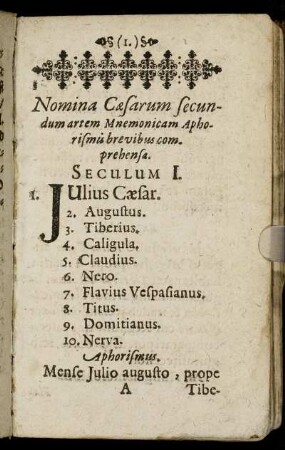 (1.)
Nomina Cæsarum secun-
dum artem Mnemonicam Apho-
rismis brevibus com-
prehensa.
SECULUM I.
1. JUlius Cæsar.
2. Augustus.
3. Tiberius.
4. Caligula.
5. Claudius.
6. Nero.
7. Flavius Vespasianus.
8. Titus.
9. Domitianus.
10. Nerva.
Aphorismus.
Mense Julio augusto, prope
A Tibe-